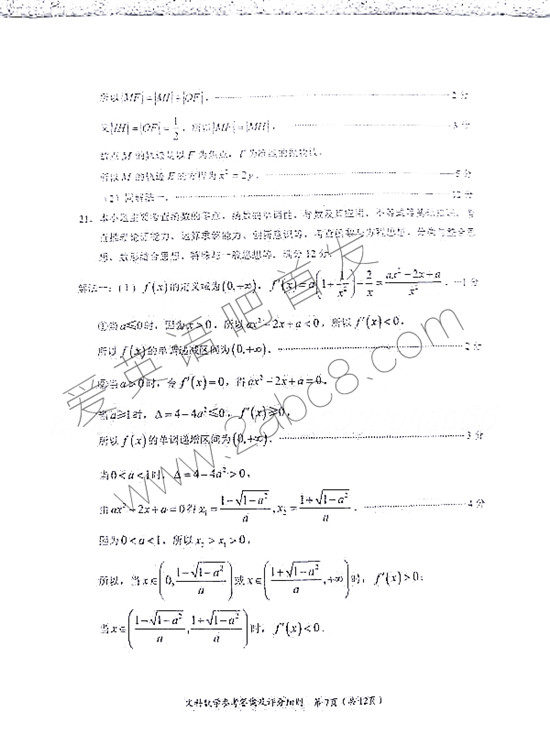 所以|MF|=|MI|+|OF|, 2分
又|IH|=|OF|=1/2, 所以|MF|=|MH|, 3分
故点M的轨迹是以F为焦点, l为准线的抛物线,
所以M的轨迹E的方程为x²=2y. 5分
(2)同解法一. 12分
21. 本小题主要考查函数的零点、函数的单调性、导数及其应用、不等式等基础知识, 考
查推理论证能力、运算求解能力、创新意识等, 考查函数与方程思想、分类与整合思
想、数形结合思想、特殊与一般思想等. 满分12分.
解法一: (1) f(x)的定义域为(0,+∞), f′(x)=a(1+1/x²)-2/x=(ax²-2x+a)/x². 1分
①当a≤0时, 因为x>0, 所以ax²-2x+a<0, 所以f′(x)<0,
所以f(x)的单调递减区间为(0,+∞). 2分
②当a>0时, 令f′(x)=0, 得ax²-2x+a=0,
当a≥1时, Δ=4-4a²≤0, f′(x)≥0,
所以f(x)的单调递增区间为(0,+∞). 3分
当0<a<1时, Δ=4-4a²>0,
由ax²-2x+a=0得x₁=(1-√(1-a²))/a, x₂=(1+√(1-a²))/a. 4分
因为0<a<1, 所以x₂>x₁>0,
所以, 当x∈(0,(1-√(1-a²))/a)或x∈((1+√(1-a²))/a,+∞)时, f′(x)>0;
当x∈((1-√(1-a²))/a,(1+√(1-a²))/a)时, f′(x)<0.
文科数学参考答案及评分细则 第7页(共12页)
爱英语吧首发
www.2abc8.com